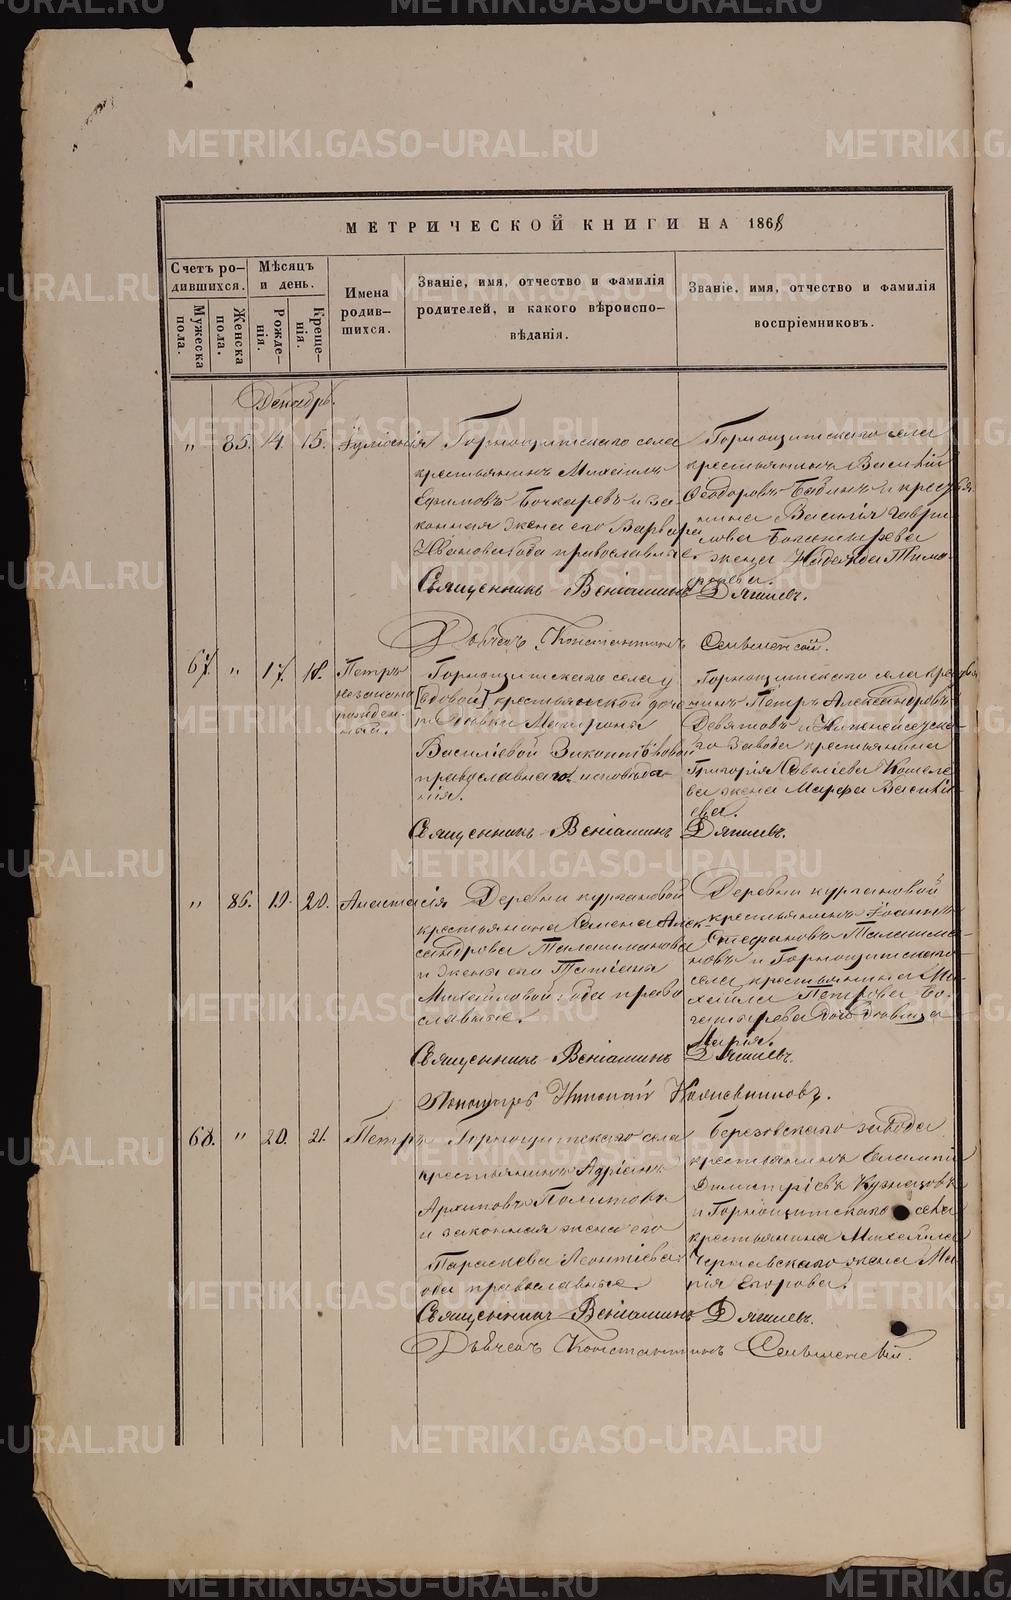 МЕТРИЧЕСКОЙ КНИГИ НА 1868
Счетъ ро-
дившихся.
Мѣсяцъ
и день.
Мужеска
пола.
Женска
пола.
Рожде-
нія.
Креще-
нія.
Имена
родив-
шихся.
Званіе, имя, отчество и фамилія
родителей, и какого вѣроиспо-
вѣданія.
Званіе, имя, отчество и фамилія
воспріемниковъ.
Декабрь.
„ 85. 14. 15. Іуліанія
Горнощитскаго села
крестьянинъ Михаилъ
Ефимовъ Бочкаревъ и за
конная жена его Варвара
Иванова оба православные.
Горнощитскаго села
крестьянинъ Василій
Феодоровъ Бабинъ и крестья
нина Василія Гаври
лова Богатырева
жена Надежда Тимо-
феева.
Священникъ Веніаминъ Дягилевъ.
Дьячекъ Константинъ
67. „ 17. 18. Петръ
незаконно
рожден-
ный.
Горнощитскаго села у
[вдовой] крестьянской доче
ри Девки Матроны
Василіевой
православнаго исповѣда-
нія.
Горнощитскаго села крестья
нинъ Петръ Александровъ
Девятовъ и Нижнеисетска-
го завода крестьянина
Григорія Савеліева Кошеле
ва жена Марфа Василь-
ева.
Священникъ Веніаминъ Дягилевъ.
„ 86. 19. 20. Анастасія
Деревни кургановой
крестьянина Семена Алек-
сандрова Талашманова
и жена его Татіана
Михайловой: оба право
славные.
Деревни кургановой
крестьянинъ Іоаннъ
Стефановъ Талашма-
новъ и Горнощитскаго
села крестьянина Ми-
хаила Петрова Бо-
гатырева дочь девица
Марія.
Священникъ Веніаминъ Дягилевъ.
Пономарь Николай
68. „ 20. 21. Петръ
Горнощитскаго села
крестьянинъ Адріанъ
Архиповъ Политовъ
и законная жена его
Параскева Леонтіева
оба православные.
Березовскаго завода
крестьянинъ
Димитріевъ Кузнецовъ
и Горнощитскаго села
крестьянина Михаила
Чернавскаго жена Ма
рія Егорова.
Священникъ Веніаминъ Дягилевъ.
Дьячекъ Константинъ
METRIKI.GASO-URAL.RU